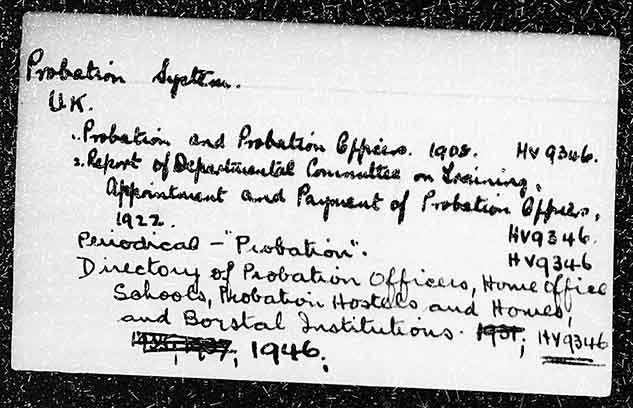 Probation System.
U.K.
1. Probation and Probation Officers. 1908. HV9346.
2. Report of Departmental Committee on Training,
Appointment and Payment of Probation Officers,
1922. HV9346.
Periodical - "Probation". HV9346
Directory of Probation Officers, Home Office
Schools, Probation Hostels and Homes,
and Borstal Institutions. 1931; HV9346
1937, 1946;